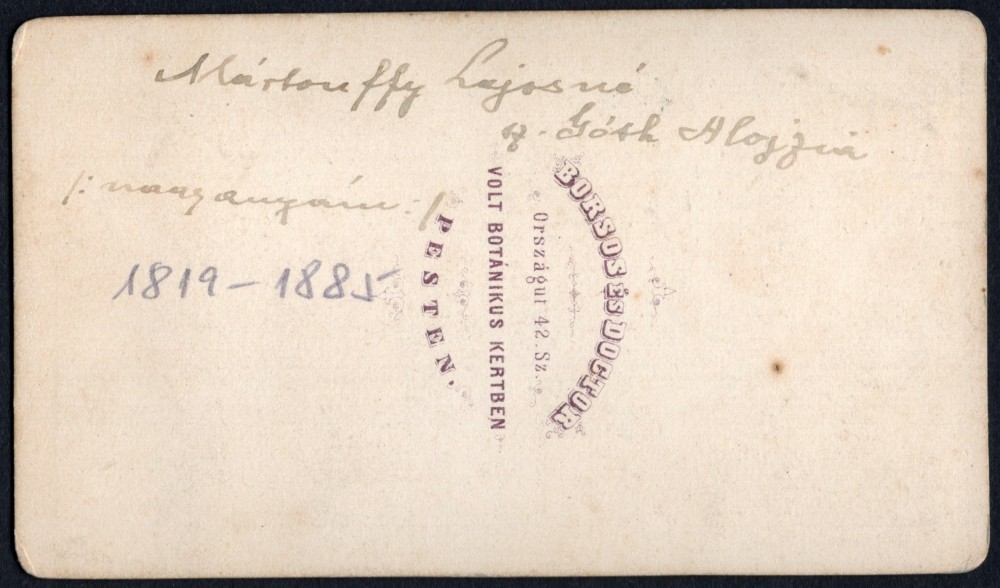 Mártonffy Lajosné
sz. Góth Alojzia
/: nagyanyám :/
1819 – 1885
BORSOS ÉS DOCTOR
Országut 42. Sz.
VOLT BOTÁNIKUS KERTBEN
PESTEN.